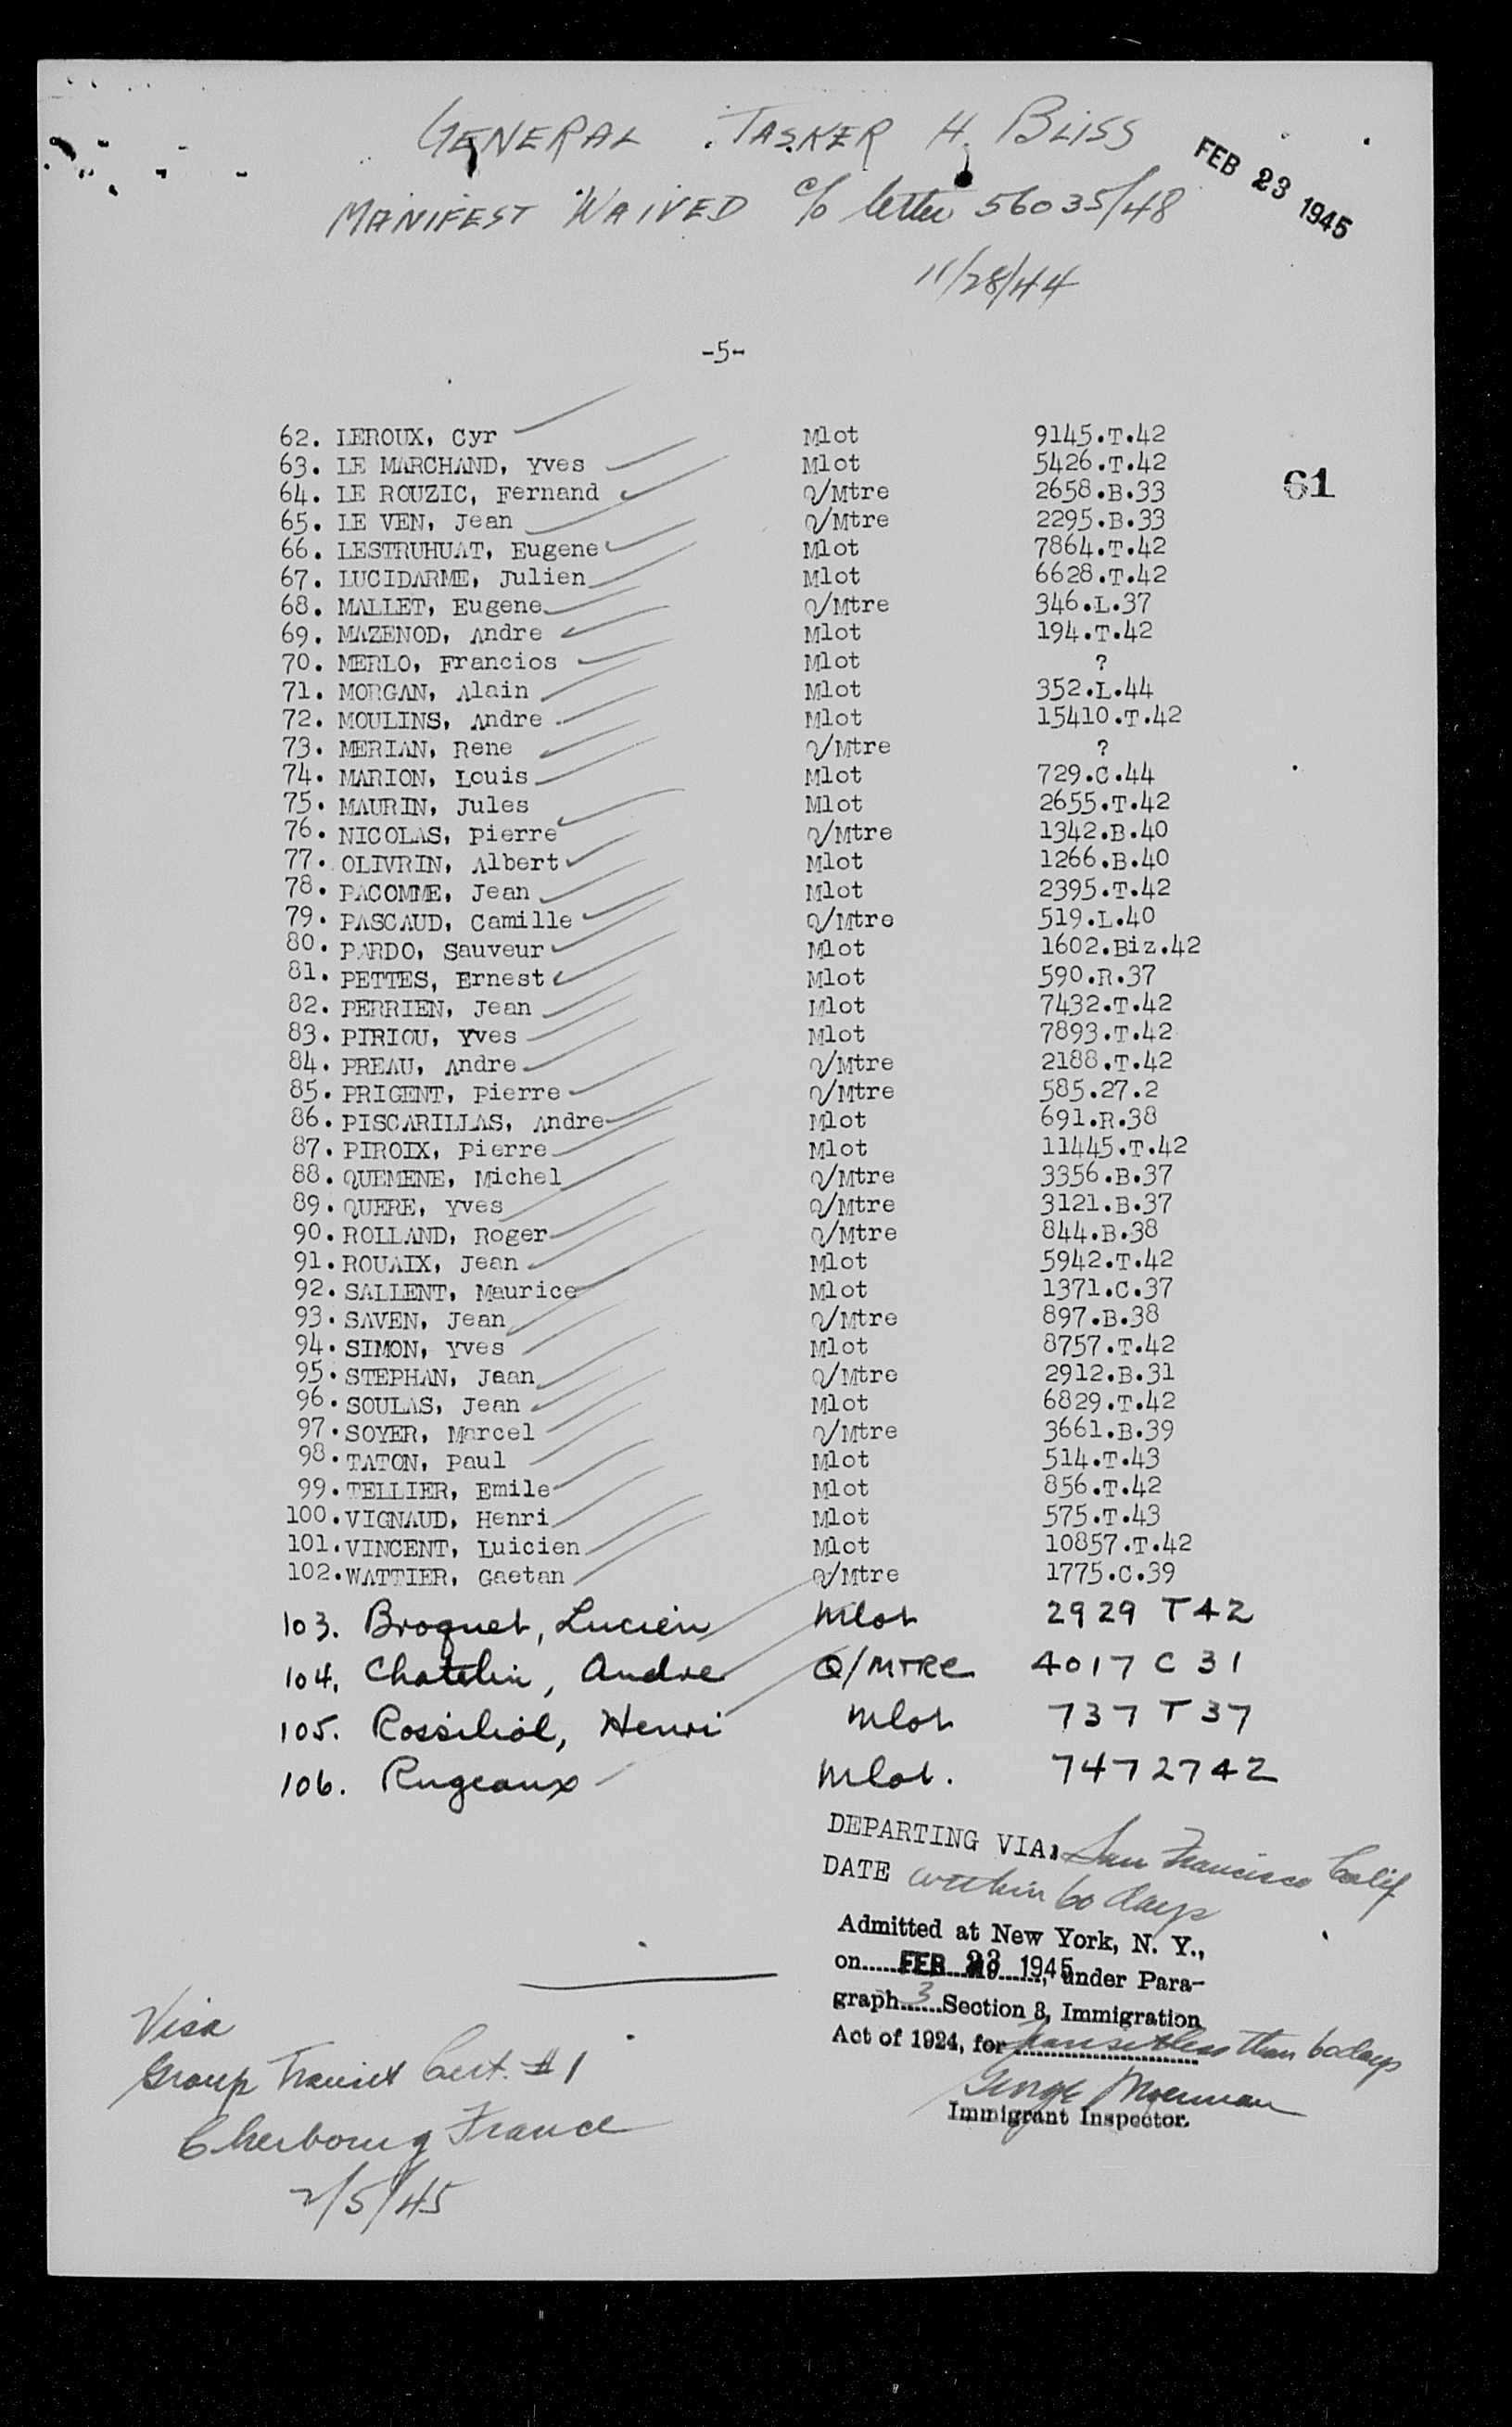 GENERAL TASKER H. BLISS
FEB 23 1945
MANIFEST WAIVED c/o letter 56035/48
11/28/44
-5-
62. LEROUX, Cyr Mlot 9145.T.42
63. LE MARCHAND, Yves Mlot 5426.T.42
61
64. LE ROUZIC, Fernand Q/Mtre 2658.B.33
65. LE VEN, Jean Q/Mtre 2295.B.33
66. LESTRUHUAT, Eugene Mlot 7864.T.42
67. LUCIDARME, Julien Mlot 6628.T.42
68. MALLET, Eugene Q/Mtre 346.L.37
69. MAZENOD, Andre Mlot 194.T.42
70. MERLO, Francios Mlot ?
71. MORGAN, Alain Mlot 352.L.44
72. MOULINS, Andre Mlot 15410.T.42
73. MERIAN, Rene Q/Mtre ?
74. MARION, Louis Mlot 729.C.44
75. MAURIN, Jules Mlot 2655.T.42
76. NICOLAS, Pierre Q/Mtre 1342.B.40
77. OLIVRIN, Albert Mlot 1266.B.40
78. PACOMME, Jean Mlot 2395.T.42
79. PASCAUD, Camille Q/Mtre 519.L.40
80. PARDO, Sauveur Mlot 1602.Biz.42
81. PETTES, Ernest Mlot 590.R.37
82. PERRIEN, Jean Mlot 7432.T.42
83. PIRIOU, Yves Mlot 7893.T.42
84. PREAU, Andre Q/Mtre 2188.T.42
85. PRIGENT, Pierre Q/Mtre 585.27.2
86. PISCARILLAS, Andre Mlot 691.R.38
87. PIROIX, Pierre Mlot 11445.T.42
88. QUEMENE, Michel Q/Mtre 3356.B.37
89. QUERE, Yves Q/Mtre 3121.B.37
90. ROLLAND, Roger Q/Mtre 844.B.38
91. ROUAIX, Jean Mlot 5942.T.42
92. SALLENT, Maurice Mlot 1371.C.37
93. SAVEN, Jean Q/Mtre 897.B.38
94. SIMON, Yves Mlot 8757.T.42
95. STEPHAN, Jaan Q/Mtre 2912.B.31
96. SOULAS, Jean Mlot 6829.T.42
97. SOYER, Marcel Q/Mtre 3661.B.39
98. TATON, Paul Mlot 514.T.43
99. TELLIER, Emile Mlot 856.T.42
100. VIGNAUD, Henri Mlot 575.T.43
101. VINCENT, Luicien Mlot 10857.T.42
102. WATTIER, Gaetan Q/Mtre 1775.C.39
103. Broquet, Lucien Mlot 2929 T42
104. Chatelin, Andre Q/MTRE 4017 C 31
105. Rossiliol, Henri Mlot 737 T 37
106. Rugeaux Mlot. 7472742
DEPARTING VIA: San Francisco Calif
DATE within 60 days
Admitted at New York, N. Y.,
on FEB 23 1945, under Para-
graph 3 Section 3, Immigration
Act of 1924, for transit less than 60 days
George
Immigrant Inspector.
Visa
Group Transit Cert. #1
Cherbourg France
2/5/45